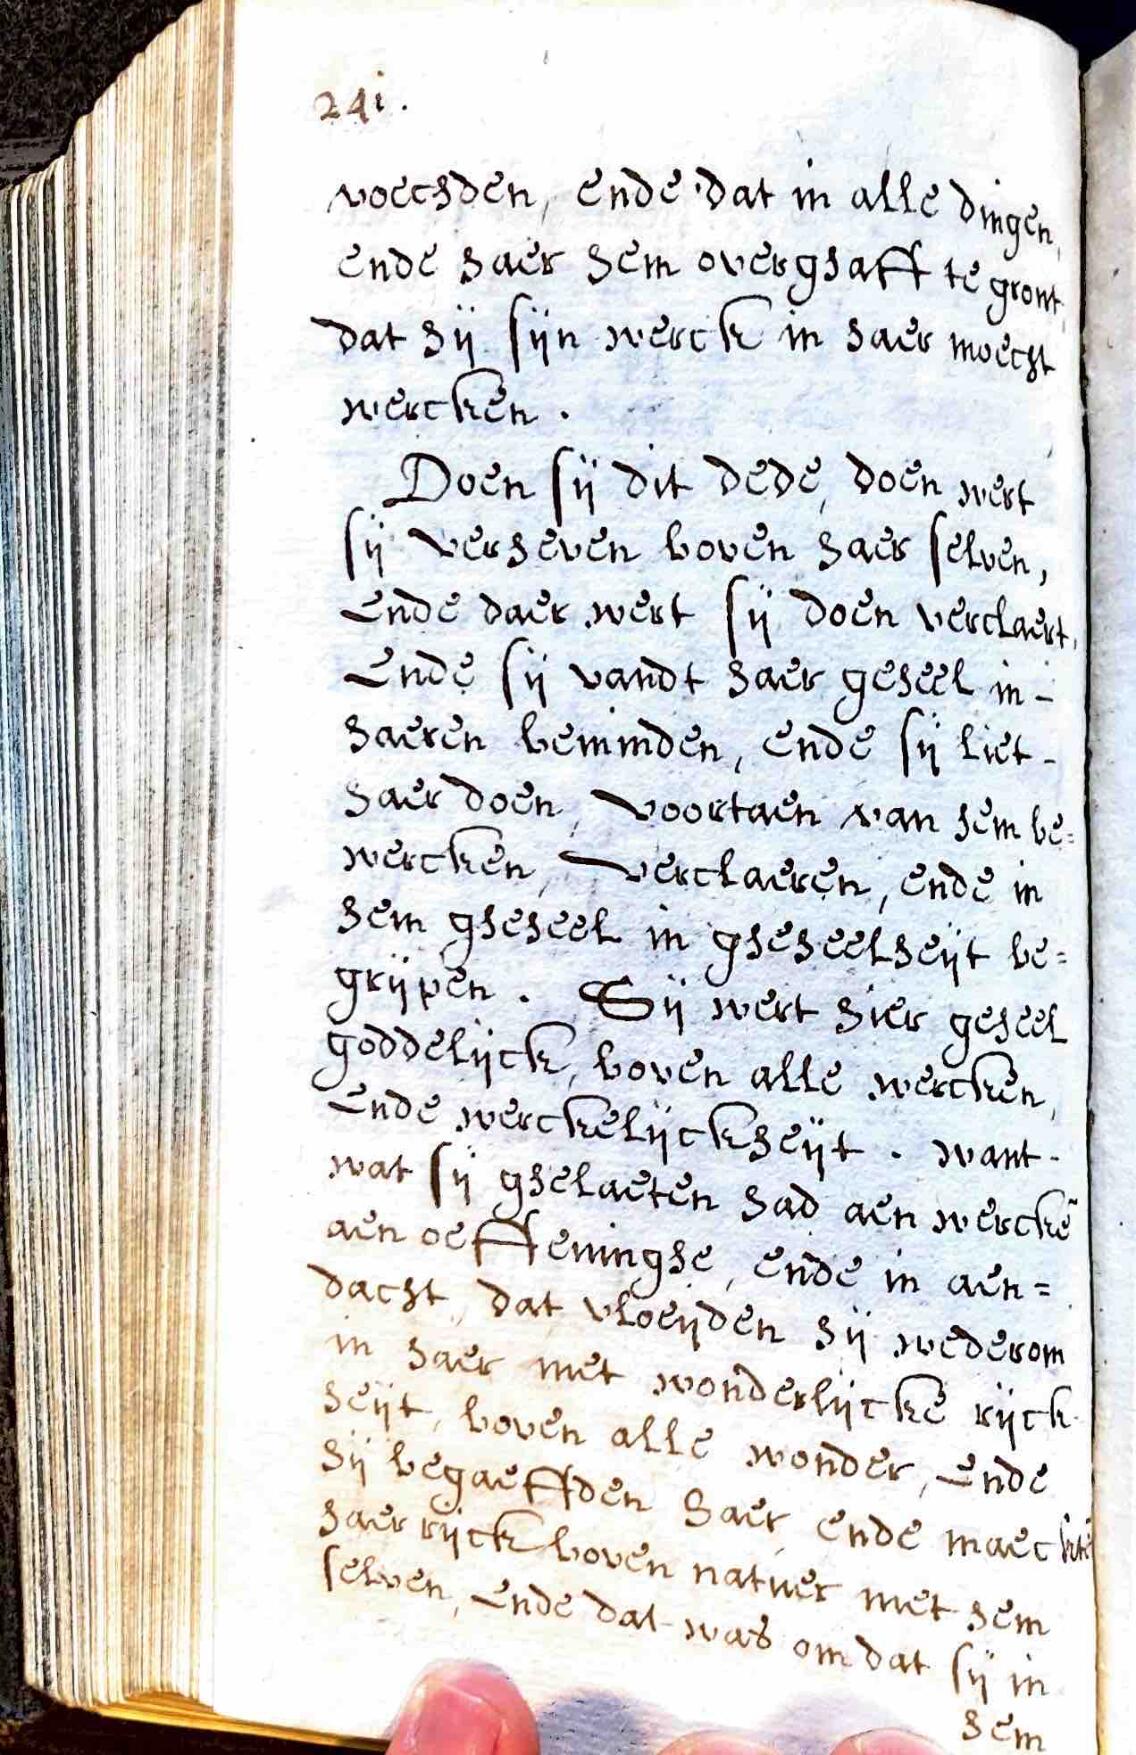 241.
voechden, ende dat in alle dingen,
ende haer hem overghaff te gront,
dat hij sijn werck in haer moecht
wercken.
Doen sij dit dede, doen wert
sij verheven boven haer selven,
Ende daer wert sij doen verclaert,
Ende sij vandt haer geheel in-
haeren beminden, ende sij liet-
haer doen, voortaen van hem be=
wercken, verclaeren, ende in
hem gheheel in gheheelheijt be=
grijpen. Sij wert hier geheel
goddelijck, boven alle wercken,
Ende werckelijckheijt. want-
wat sij ghelaeten had aen wercke͂
aen oeffeninghe, ende in aen=
dacht, dat vloeijden hij wederom
in haer met wonderlijcke rijck-
heijt, boven alle wonder, Ende
hij begaeffden haer, ende maeckte
haer rijck boven natuer met hem
selven, Ende dat was om dat sij in
hem